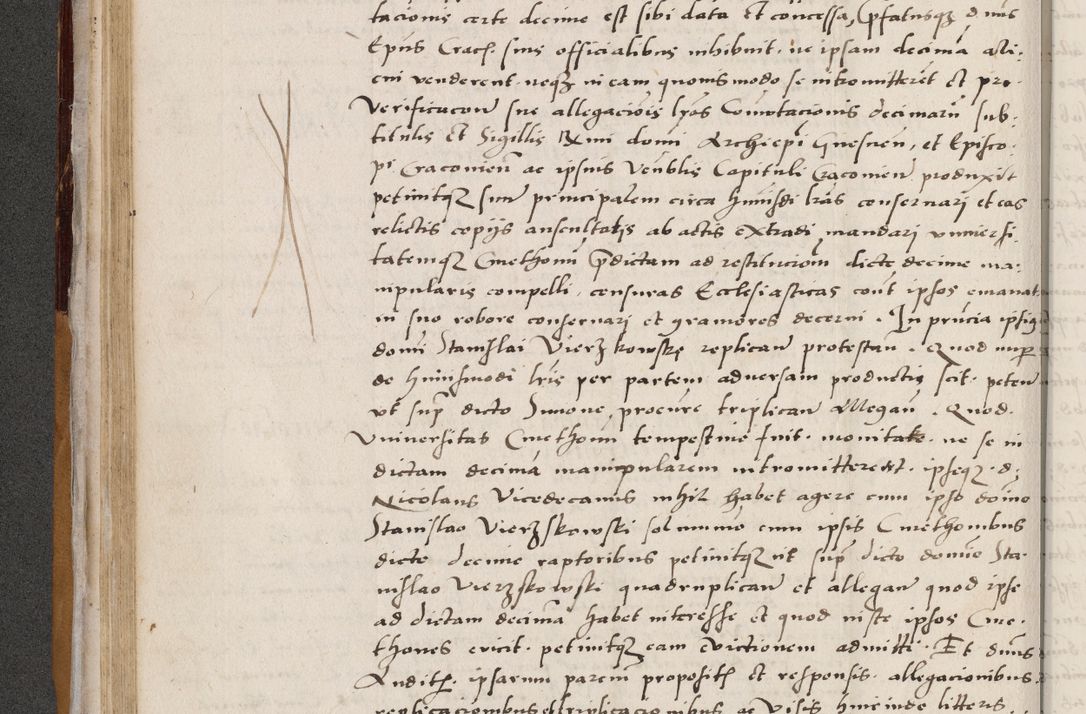 tacionis certe decime est sibi data et concessa, pfatusqz d. nus
Epus Crach. suis officialibus inhibuit. ne ipsam decimā ali:
cui venderent. neqz in eam quouis modo se intromitteret et pro
Verificacone sue allegaciōis lrās Comutacionis decimarū sub.
titulis et Sigillis Rx̄mi domi Archiepi Gnesnen. et Episco.
pi Cracouien̄ ac ipsius Veneblis Capituli Cracouien. produxit
petiuitqz sum principalem circa huiusdi lrās conseruari et eas
relictis copijs auscultatis ab actis extradi, mandari vniuersi.
tatemqz Cmethonū pdictam ad restitucioem dicte decime ma:
nipularis compelli. censuras Ecclesiasticas cont ipsos emanat
in suo robore conseruari et gramores decerni. In pn̄cia ipsig
domi Stanislai Vierzkowskę replican̄ protestan̄. Quod nup
de huiusmodi lris per partem aduersam productis scit. peten
vt sup dicto Sinone, procure triplican̄ Allegan̄. Quod
Vniuersitas Cmethonū tempestiue fuit. monitate. ne se in
dictam decimā manipularem intromitterent. ipseqz. d:
Nicolaus Vicedecanus nihil habet agere cum ipso doīno
Stanislao Vierzskowski solummō cum ipsis Cmethonibus
dicte decime raptoribus petiuitqz vt sup dicto domīo Sta-
nislao Vierzskowski quadruplican̄ et allegan̄ quod ipse
ad dictam decimā habet interesse et quod iuste ipsos Cme.
thones euicit. petiuitqz eam euictionem admitti. Et dnus
Auditer. ipsarum parciū propositis et responsis. allegacionibus
replicacionibus et triplicacionibus ac Visis hincinde litteris